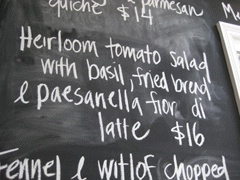 quiche parmesan
$14
Heirloom tomato salad
with basil, fried bread
& paesanella fior di
latte $16
Fennel & witlof chopped